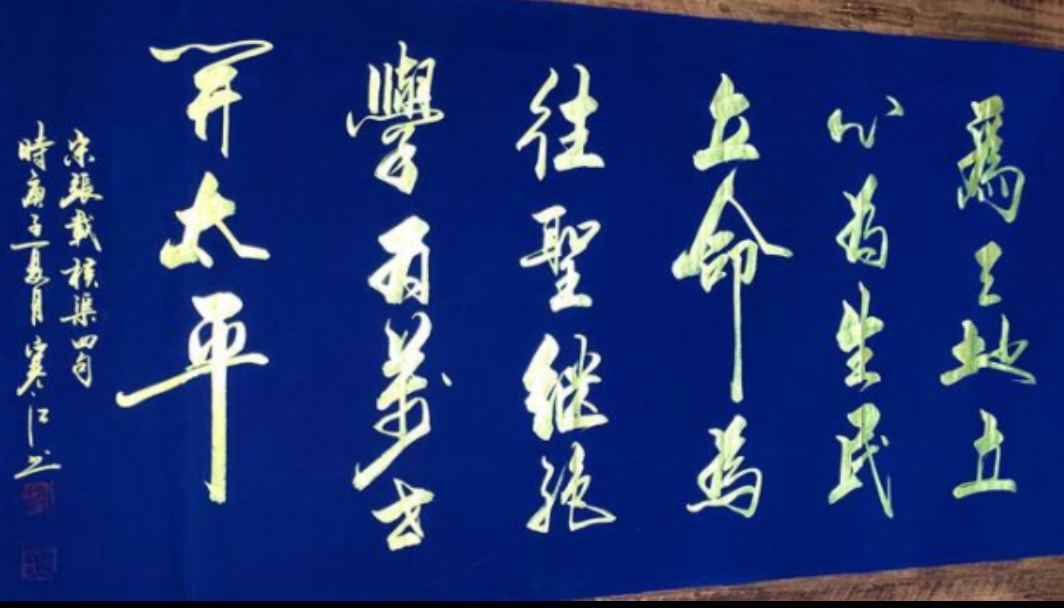 為天地立
心為生民
立命為
往聖継絕
學為萬世
開太平
宋張載橫渠四句
時庚子夏月寒江書